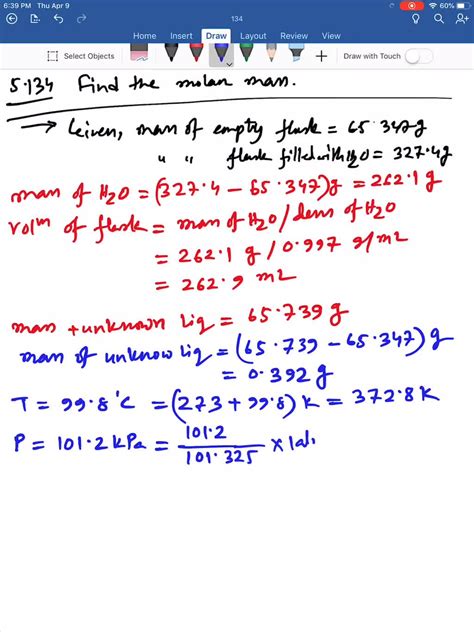 6:39 PM Thu Apr 9
60%
134
Home Insert Draw Layout Review View
Select Objects
Draw with Touch
5.134 Find the molar mass.
→ Given, mass of empty flask = 65.347g
" " flask filled with H2O = 327.4g
mass of H2O = (327.4 – 65.347)g = 262.1 g
volm of flask = mass of H2O / dens of H2O
= 262.1 g / 0.997 g/m2
= 262.9 m2
mass + unknown liq = 65.739 g
mass of unknow liq = (65.739 – 65.347) g
= 0.392 g
T = 99.8°C = (273 + 99.8) K = 372.8 K
P = 101.2 kPa = 101.2 / 101.325 × 1 at